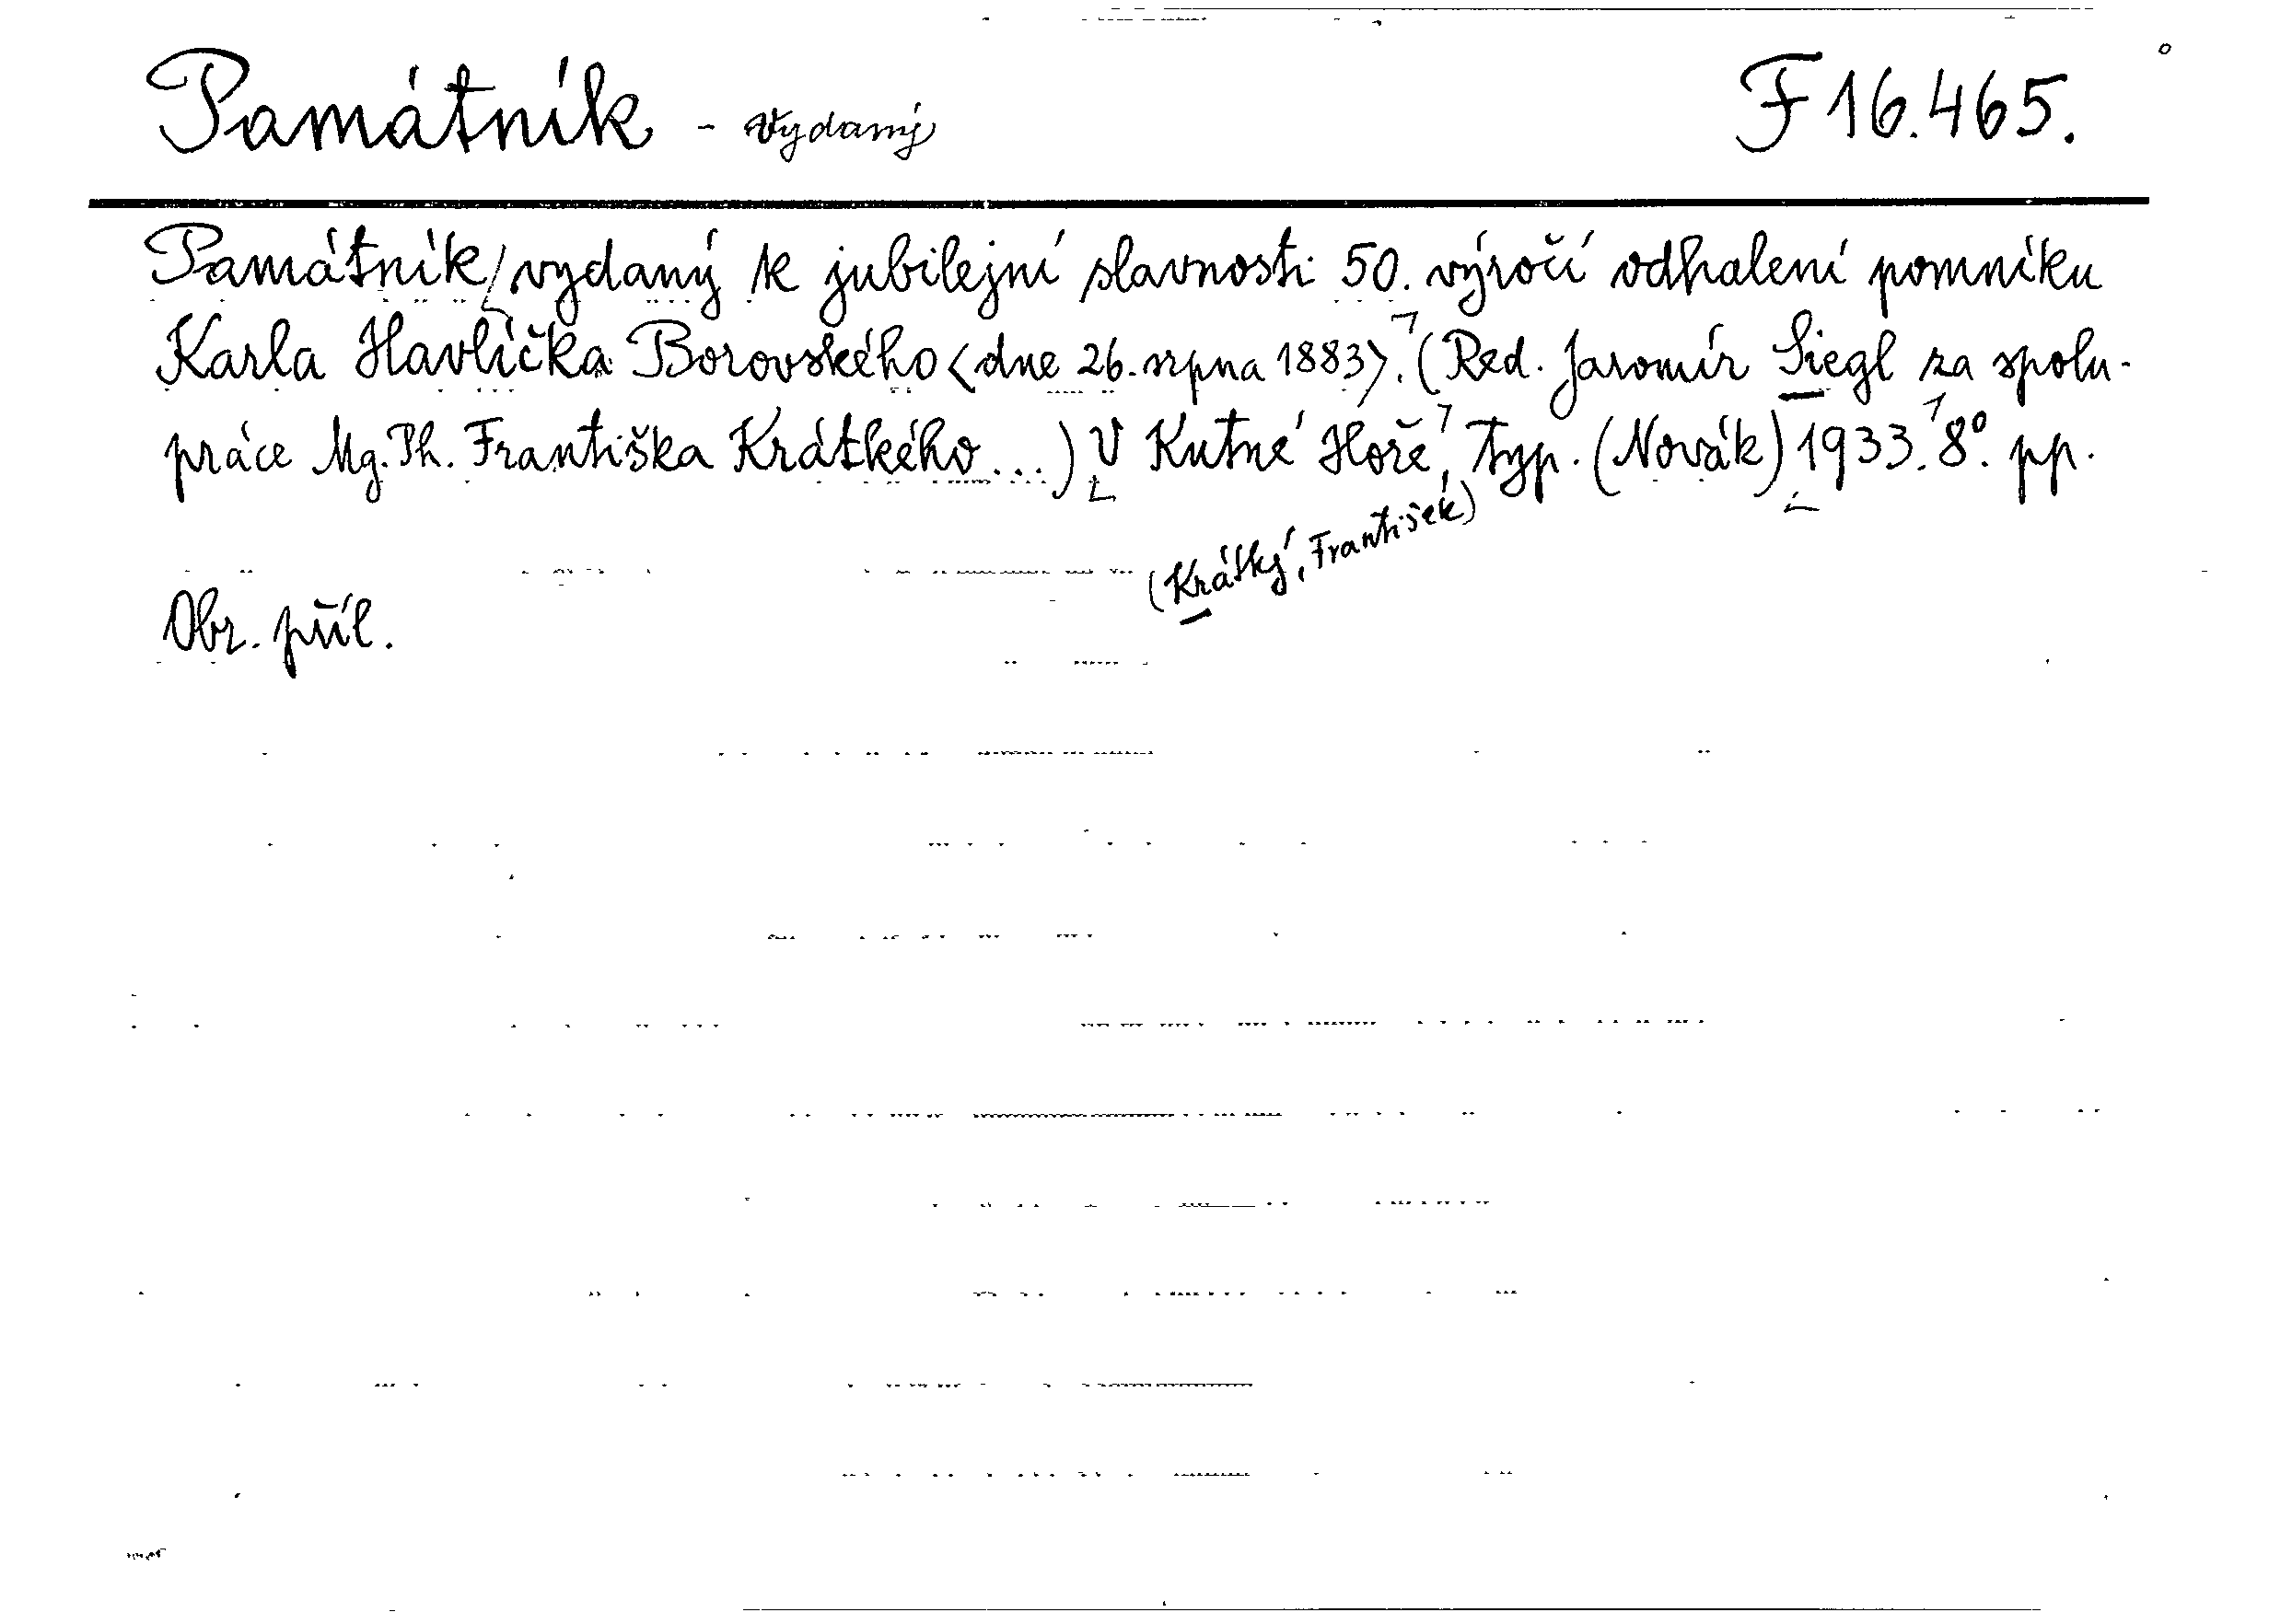 Památník - vydaný F 16.465.
Památník vydaný k jubilejní slavnosti 50. výročí odhalení pomníku
Karla Havlíčka Borovského <dne 26. srpna 1883>. (Red. Jaromír Siegl za spolu-
práce Mg. Ph. Františka Krátkého...) V Kutné Hoře, typ. (Novák) 1933. 8°. pp.
(Krátký, František)
Obr. příl.